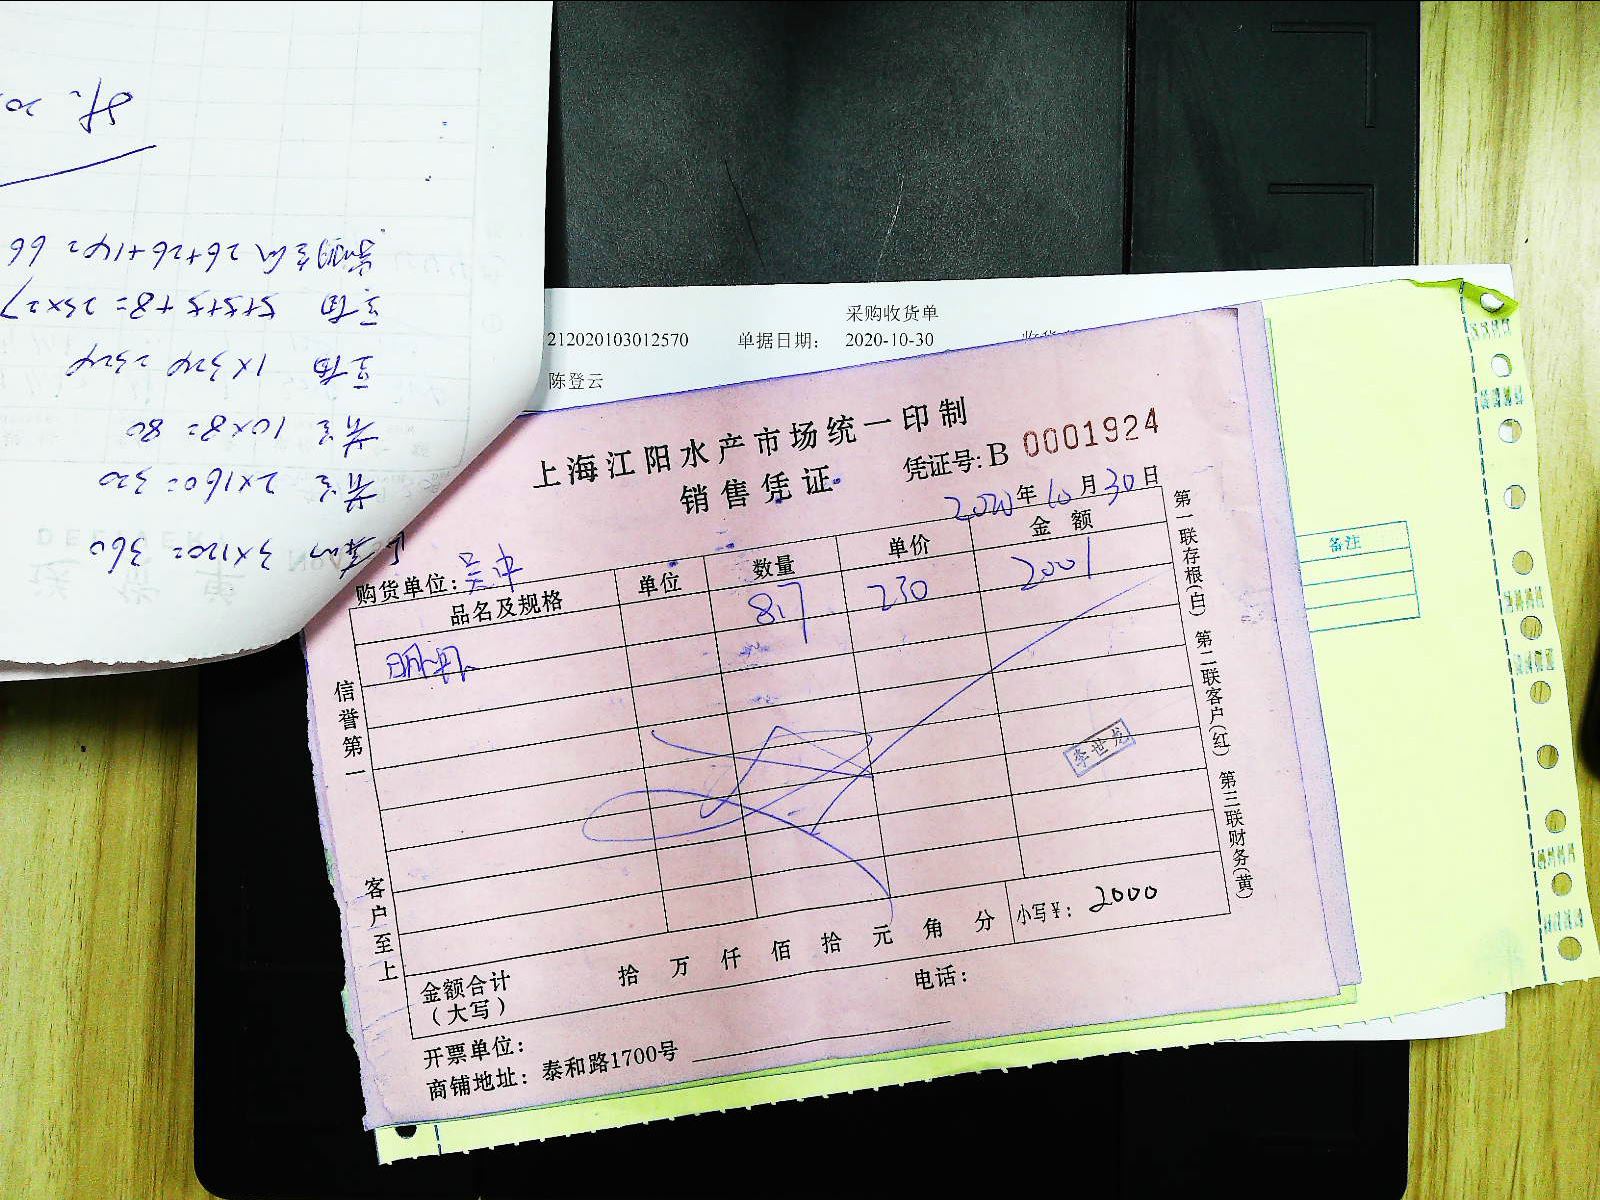 采购收货单
212020103012570 单据日期： 2020-10-30
陈登云
上海江阳水产市场统一印制
销售凭证
凭证号: B 0001924
2020年10月30日
购货单位: 吴中
品名及规格 单位 数量 单价 金额
8.7 230 2001
信誉第一
客户至上
第一联存根(白) 第二联客户(红) 第三联财务(黄)
李世龙
金额合计
(大写)
拾 万 仟 佰 拾 元 角 分 小写¥: 2000
开票单位: 电话:
商铺地址: 泰和路1700号
备注
3×120=360
2×160=320
10×8=80
1×324=324
5+5+5+8=23×27
26+26+14=66